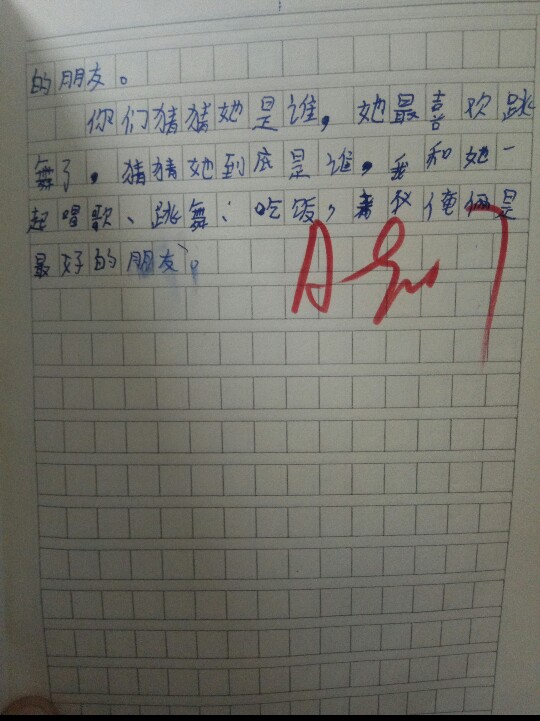 的朋友。
你们猜猜她是谁,她最喜欢跳
舞了,猜猜她到底是谁,我和她一
起唱歌、跳舞、吃饭,我俩是
最好的朋友。